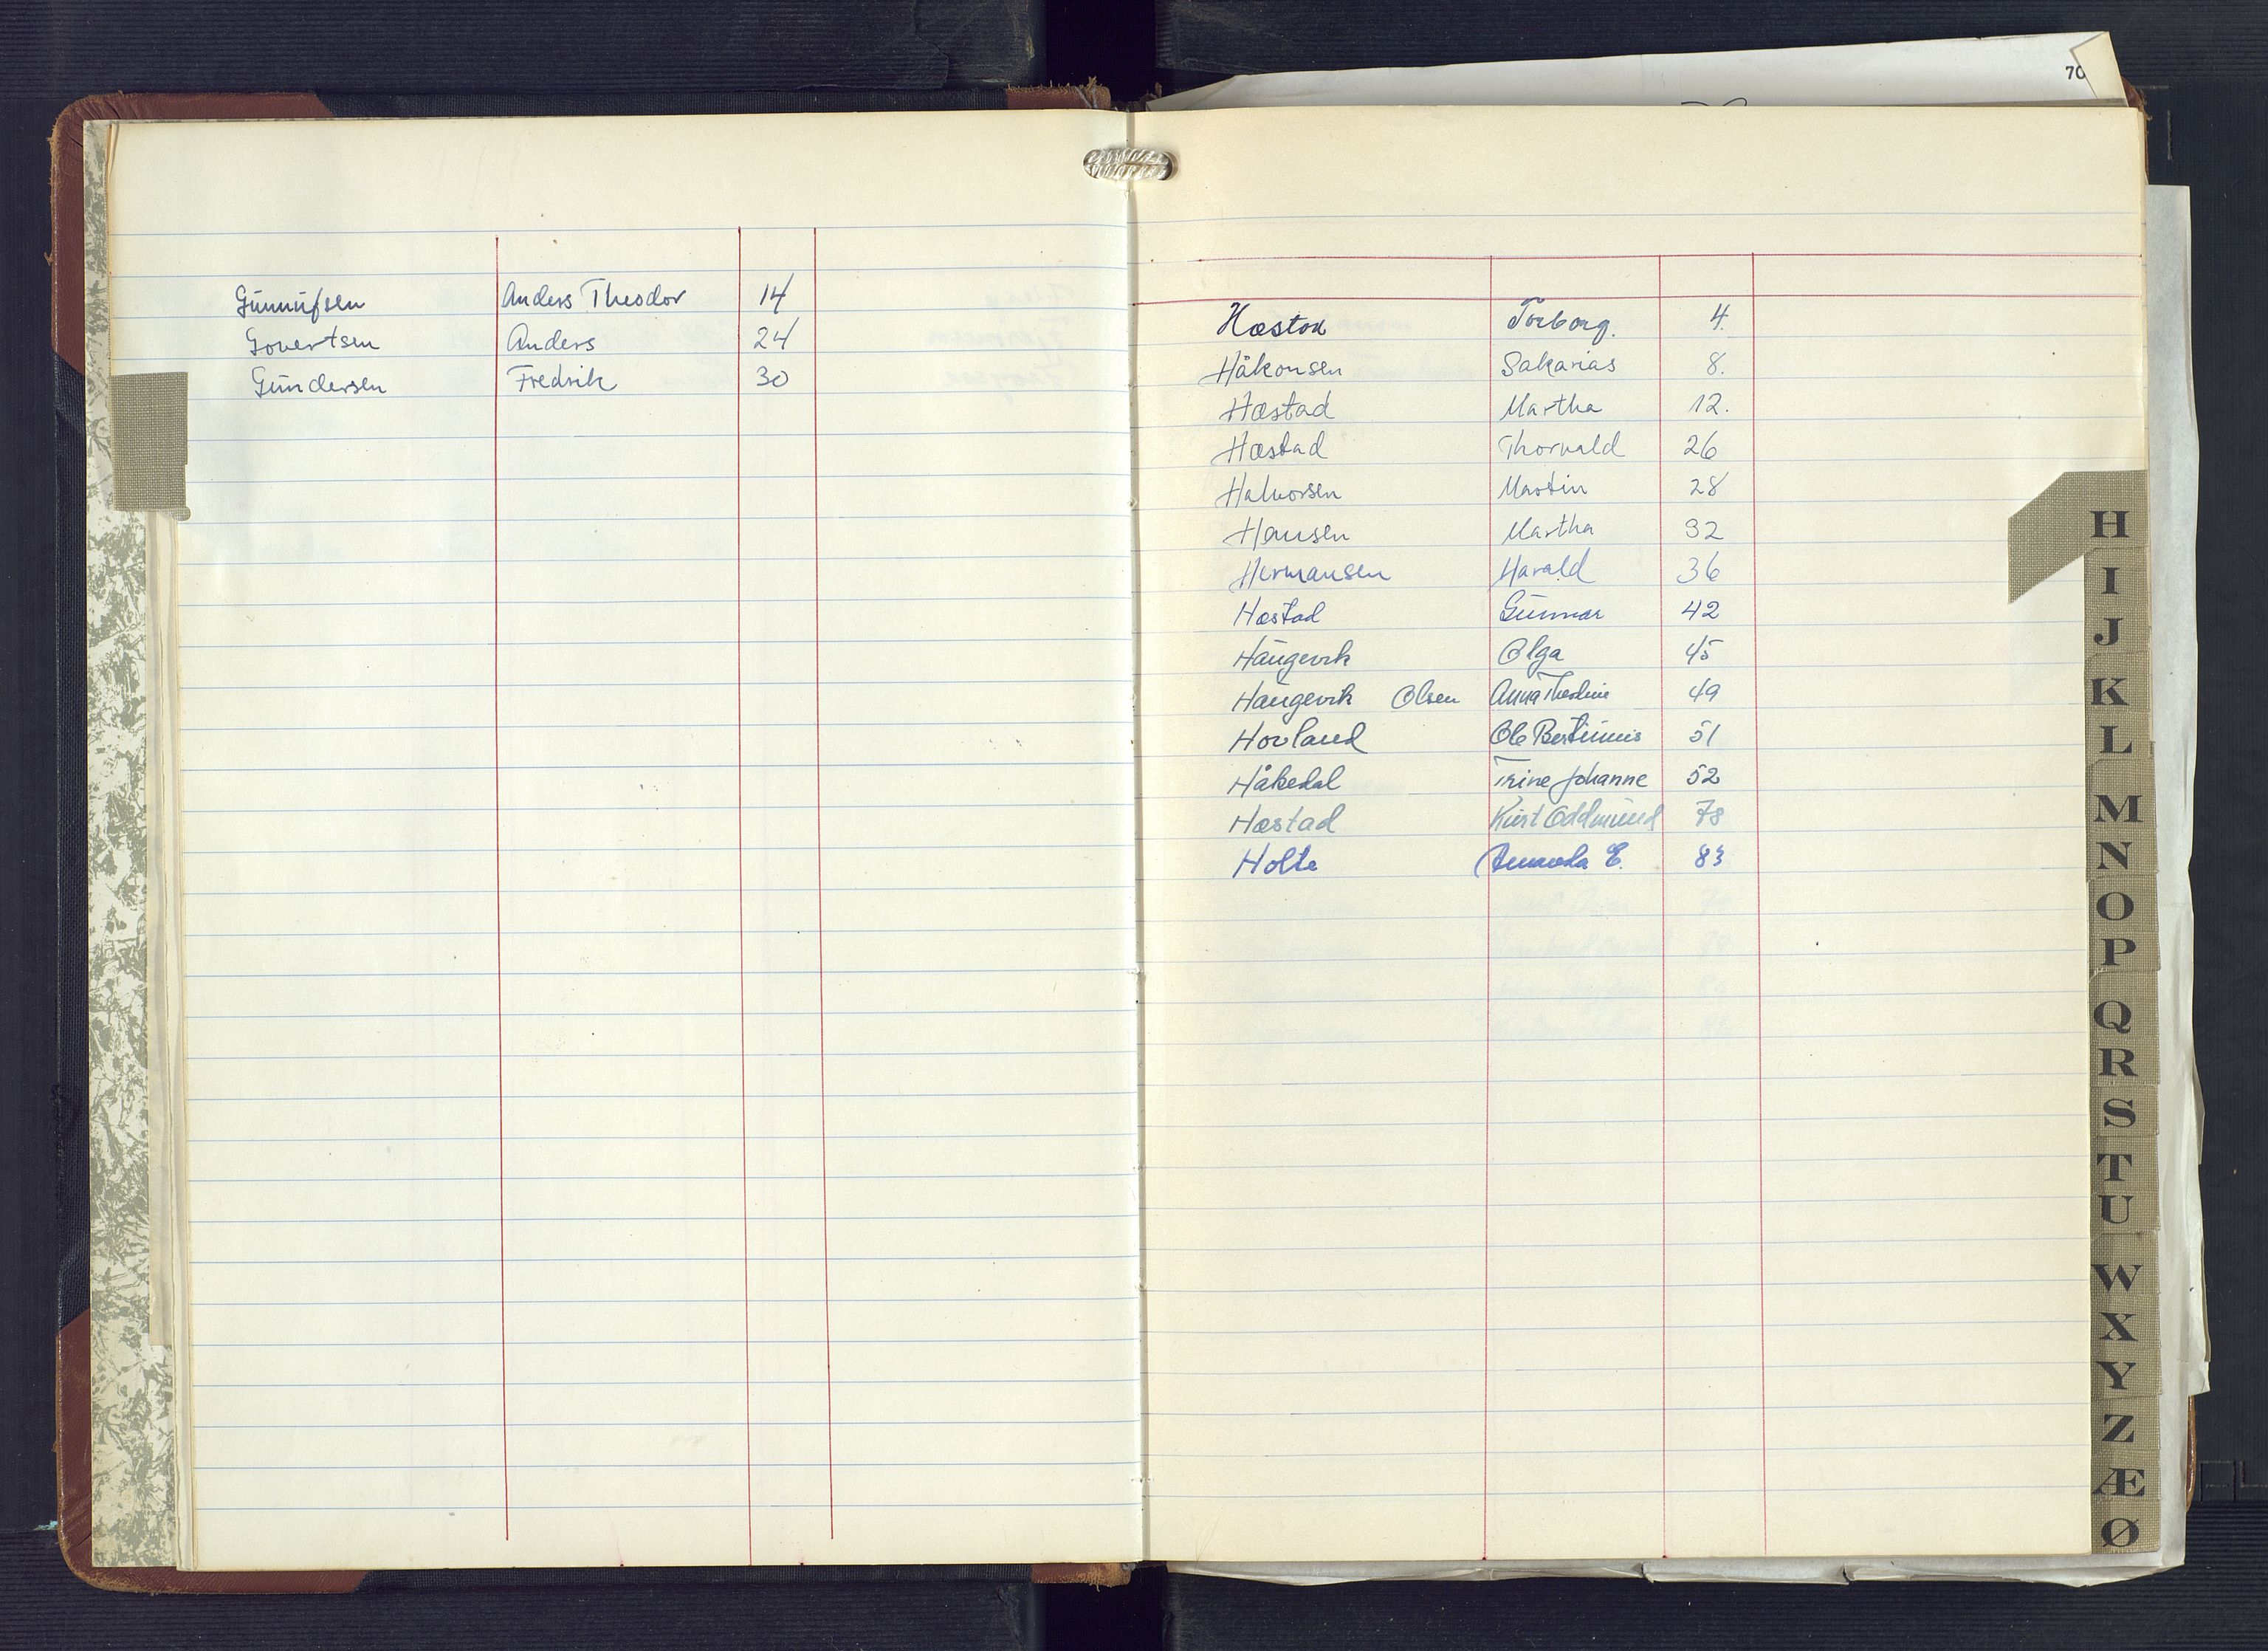 70
Gunnufsen Anders Theodor 14
Govertsen Anders 24
Gundersen Fredrik 30
Hæstad Torborg. 4.
Håkonsen Sakarias 8.
Hæstad Martha 12.
Hæstad Thorvald 26
Halvorsen Martin 28
Hansen Martha 32
Hermansen Harald 36
Hæstad Gunnar 42
Haugevik Olga 45
Haugevik Olsen Anna Theoline 49
Hovland Ole Bertinius 51
Håkedal Trine Johanne 52
Hæstad Kurt Oddmund 78
Holte Amanda E. 83
H
I
J
K
L
M
N
O
P
Q
R
S
T
U
W
X
Y
Z
Æ
Ø